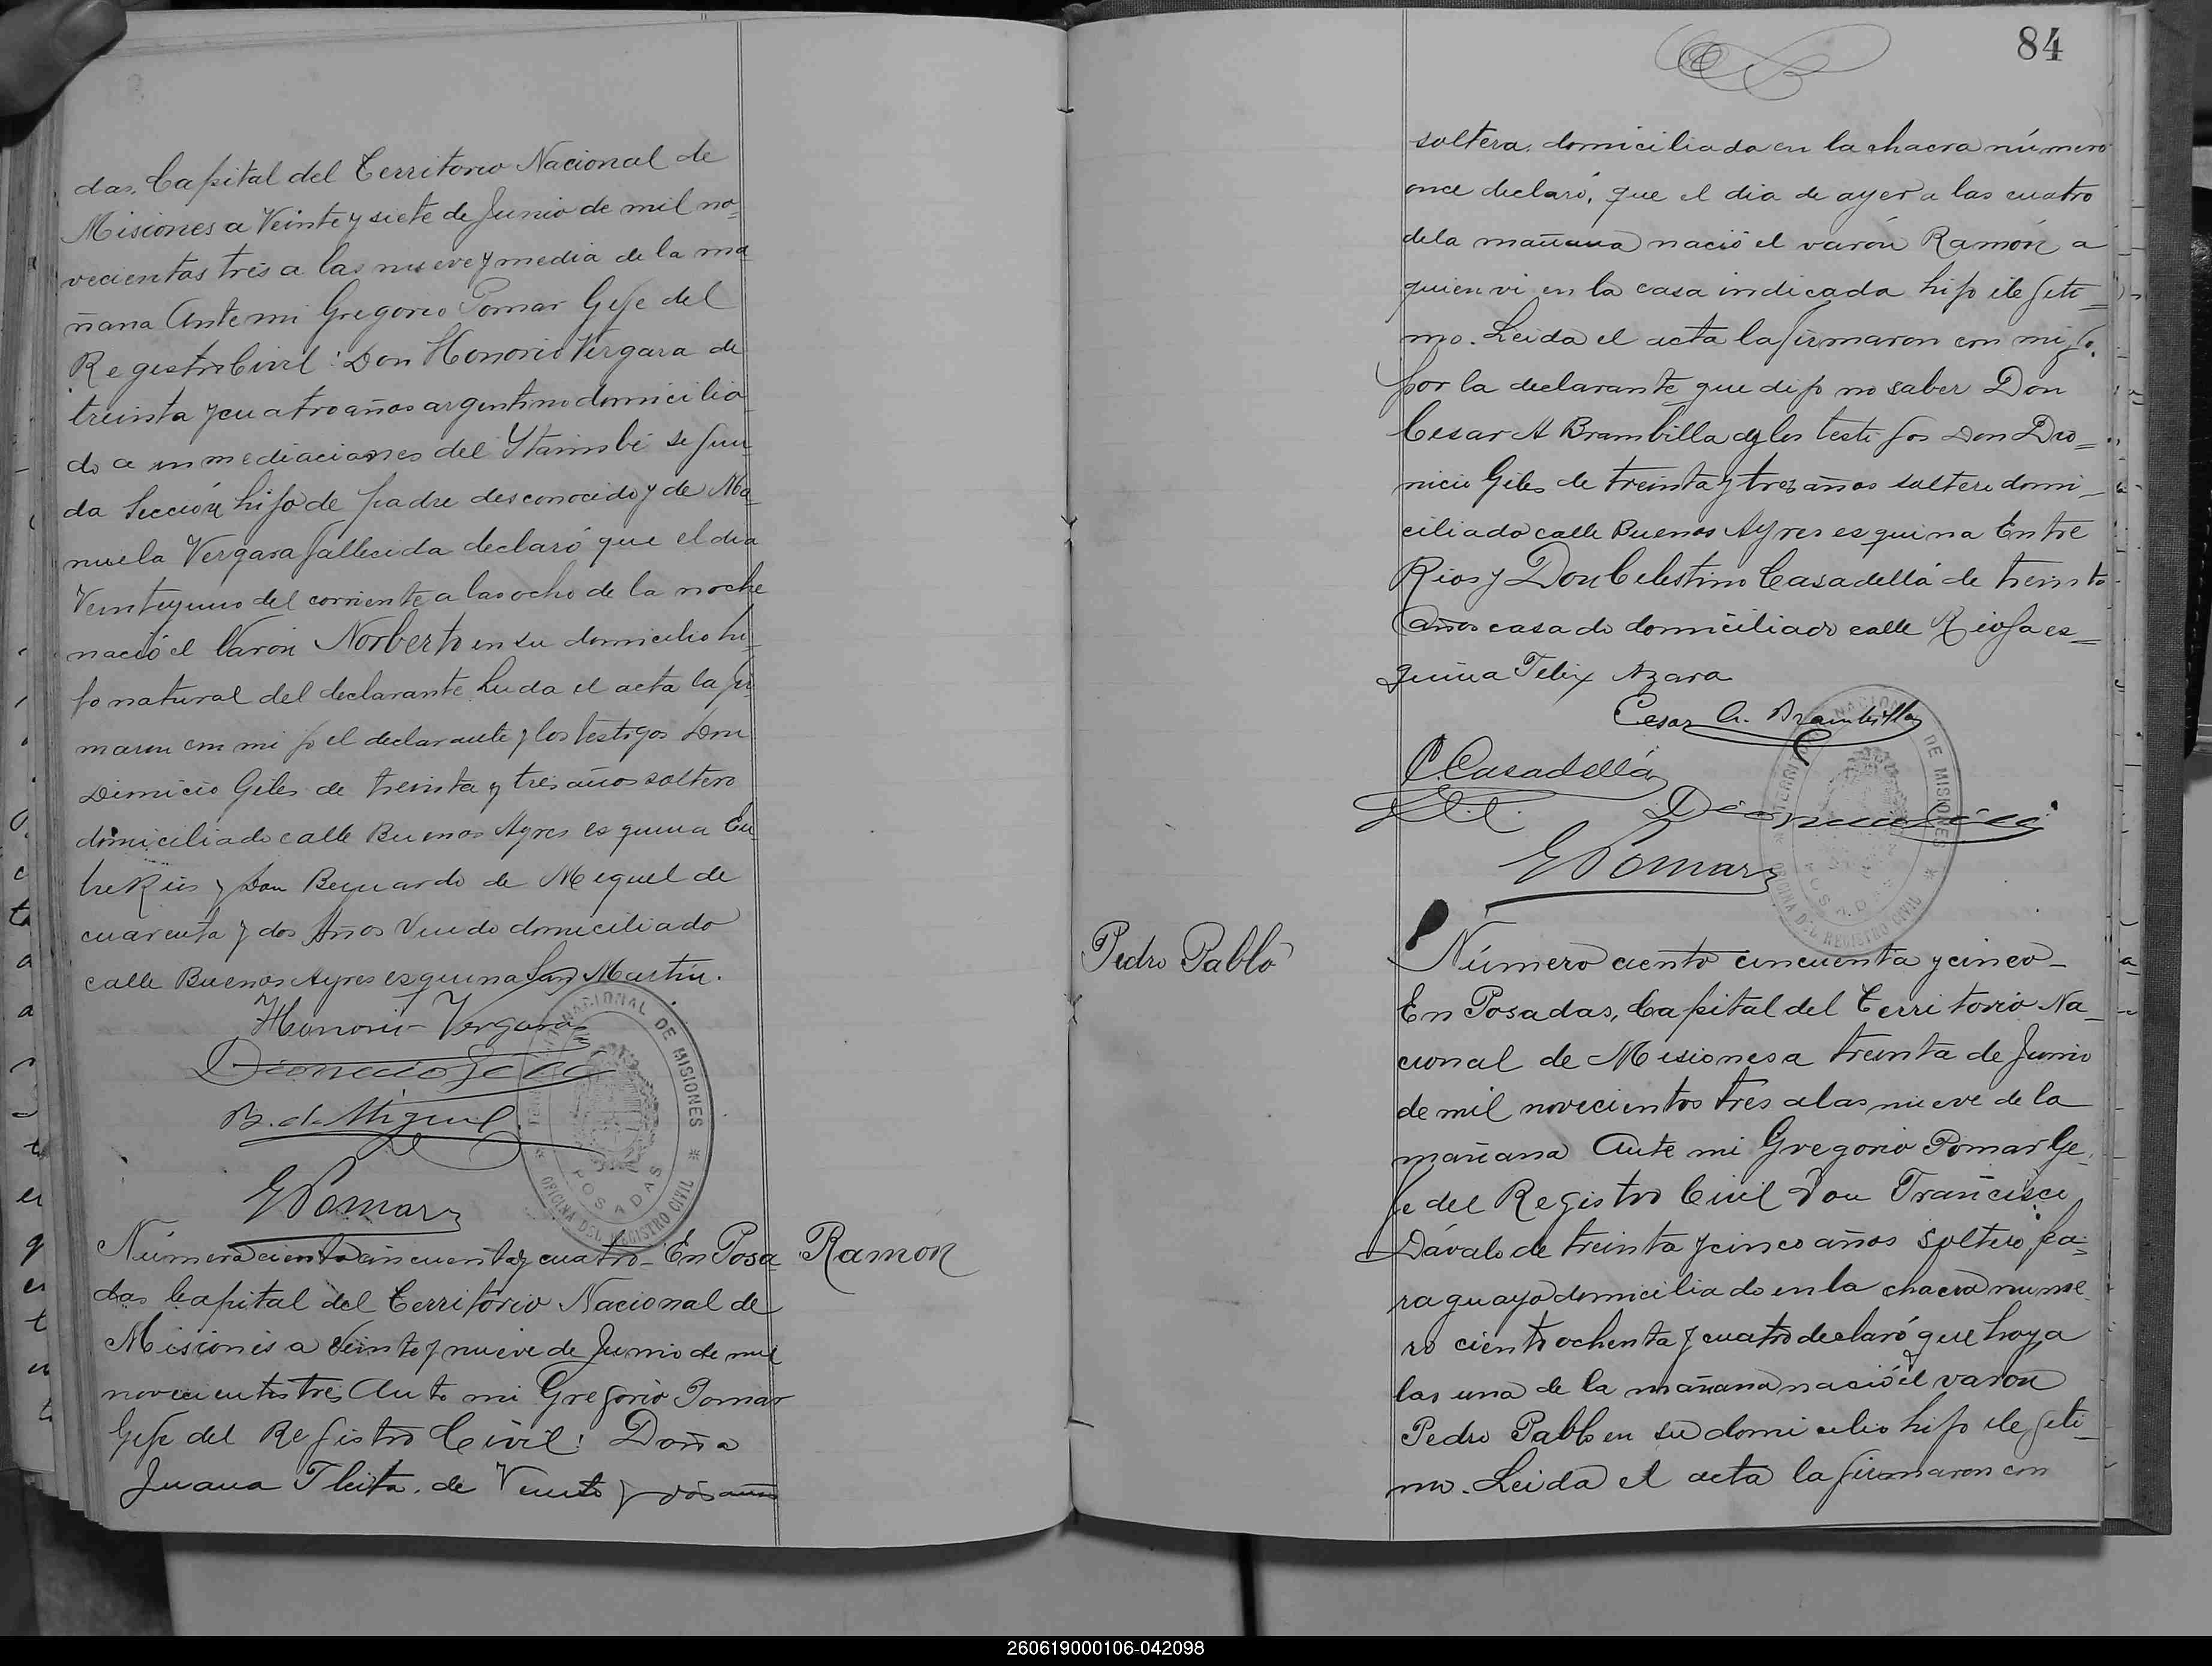 das, Capital del Territorio Nacional de
Misiones a Veinte y siete de Junio de mil no=
vecientos tres a las nueve y media de la ma
ñana Ante mi Gregorio Pomar Gefe del
Registro Civil: Don Honorio Vergara de
treinta y cuatro años argentino domicilia
do a inmediaciones del Ytaimbé segun
da Sección hijo de padre desconocido y de Ma
nuela Vergara fallecida declaró que el dia
Veinteyuno del corriente a las ocho de la noche
nació el Varón Norberto en su domicilio hi
jo natural del declarante Leida el acta la fir
maron con migo el declarante y los testigos Don
Dionicio Giles de treinta y tres años soltero
domiciliado calle Buenos Ayres esquina En
tre Rios y Don Bernardo de Miguel de
cuarenta y dos Años Viudo domiciliado
calle Buenos Ayres esquina San Martin.
Honorio Vergara
Dionicio Giles
B. de Miguel
G Pomar
TERRITORIO NACIONAL DE MISIONES
POSADAS
OFICINA DEL REGISTRO CIVIL
Número ciento cincuenta y cuatro - En Posa
Ramon
das Capital del Territorio Nacional de
Misiones a Veinte y nueve de Junio de mil
novecientos tres Ante mi Gregorio Pomar
Gefe del Registro Civil: Doña
Juana Fleita. de Veinte y dos años
84
soltera. domiciliada en la chacra número
once declaró, que el dia de ayer a las cuatro
de la mañana nació el varón Ramón a
quien vi en la casa indicada hijo ilegiti=
mo. Leida el acta la firmaron con migo.
por la declarante que dijo no saber Don
Cesar A Brambilla y los testigos Don Dio=
nicio Giles de treinta y tres años soltero domi-
ciliado calle Buenos Ayres esquina Entre
Rios y Don Celestino Casadellá de treinta
años casado domiciliado calle Rioja es=
quina Felix Azara
Cesar A. Brambilla
C. Casadellá
Dionicio Giles
G Pomar
TERRITORIO NACIONAL DE MISIONES
POSADAS
OFICINA DEL REGISTRO CIVIL
Pedro Pablo
Número ciento cincuenta y cinco -
En Posadas, Capital del Territorio Na-
cional de Misiones a treinta de Junio
de mil novecientos tres a las nueve de la
mañana Ante mi Gregorio Pomar Ge-
fe del Registro Civil Don Francisco
Dávalo de treinta y cinco años soltero pa=
raguayo domiciliado en la chacra nume-
ro ciento ochenta y cuatro declaró que hoy a
las una de la mañana nació el varon
Pedro Pablo en su domicilio hijo ilegiti-
mo. Leida el acta la firmaron con
260619000106-042098